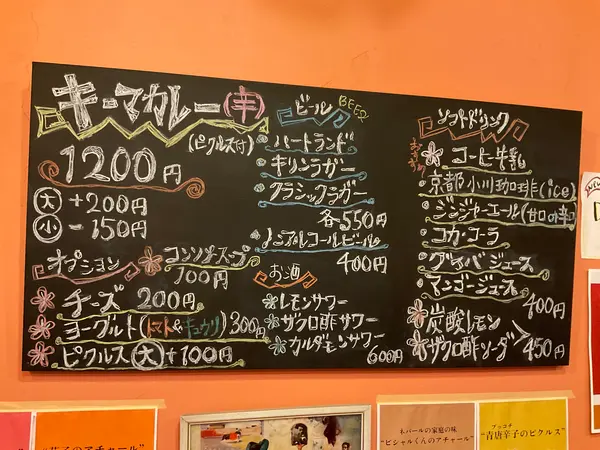 キーマカレー(辛)
(ピクルス付)
1200円
大 +200円
小 -150円
オプション
コンソメスープ
100円
チーズ 200円
ヨーグルト(トマト&キュウリ)300円
ピクルス 大 +100円
ビール BEER
ハートランド
キリンラガー
クラシックラガー
各550円
ノンアルコールビール
400円
お酒
レモンサワー
ザクロ酢サワー
カルダモンサワー
600円
ソフトドリンク
コーヒー牛乳
京都小川珈琲(ice)
ジンジャーエール(甘口or辛口
コカ・コーラ
グァバジュース
マンゴージュース
400円
炭酸レモン
ザクロ酢ソーダ
450円
NEW
"茄子のアチャール"
ネパールの家庭の味
"ビシャルくんのアチャール"
"青唐辛子のピクルス"